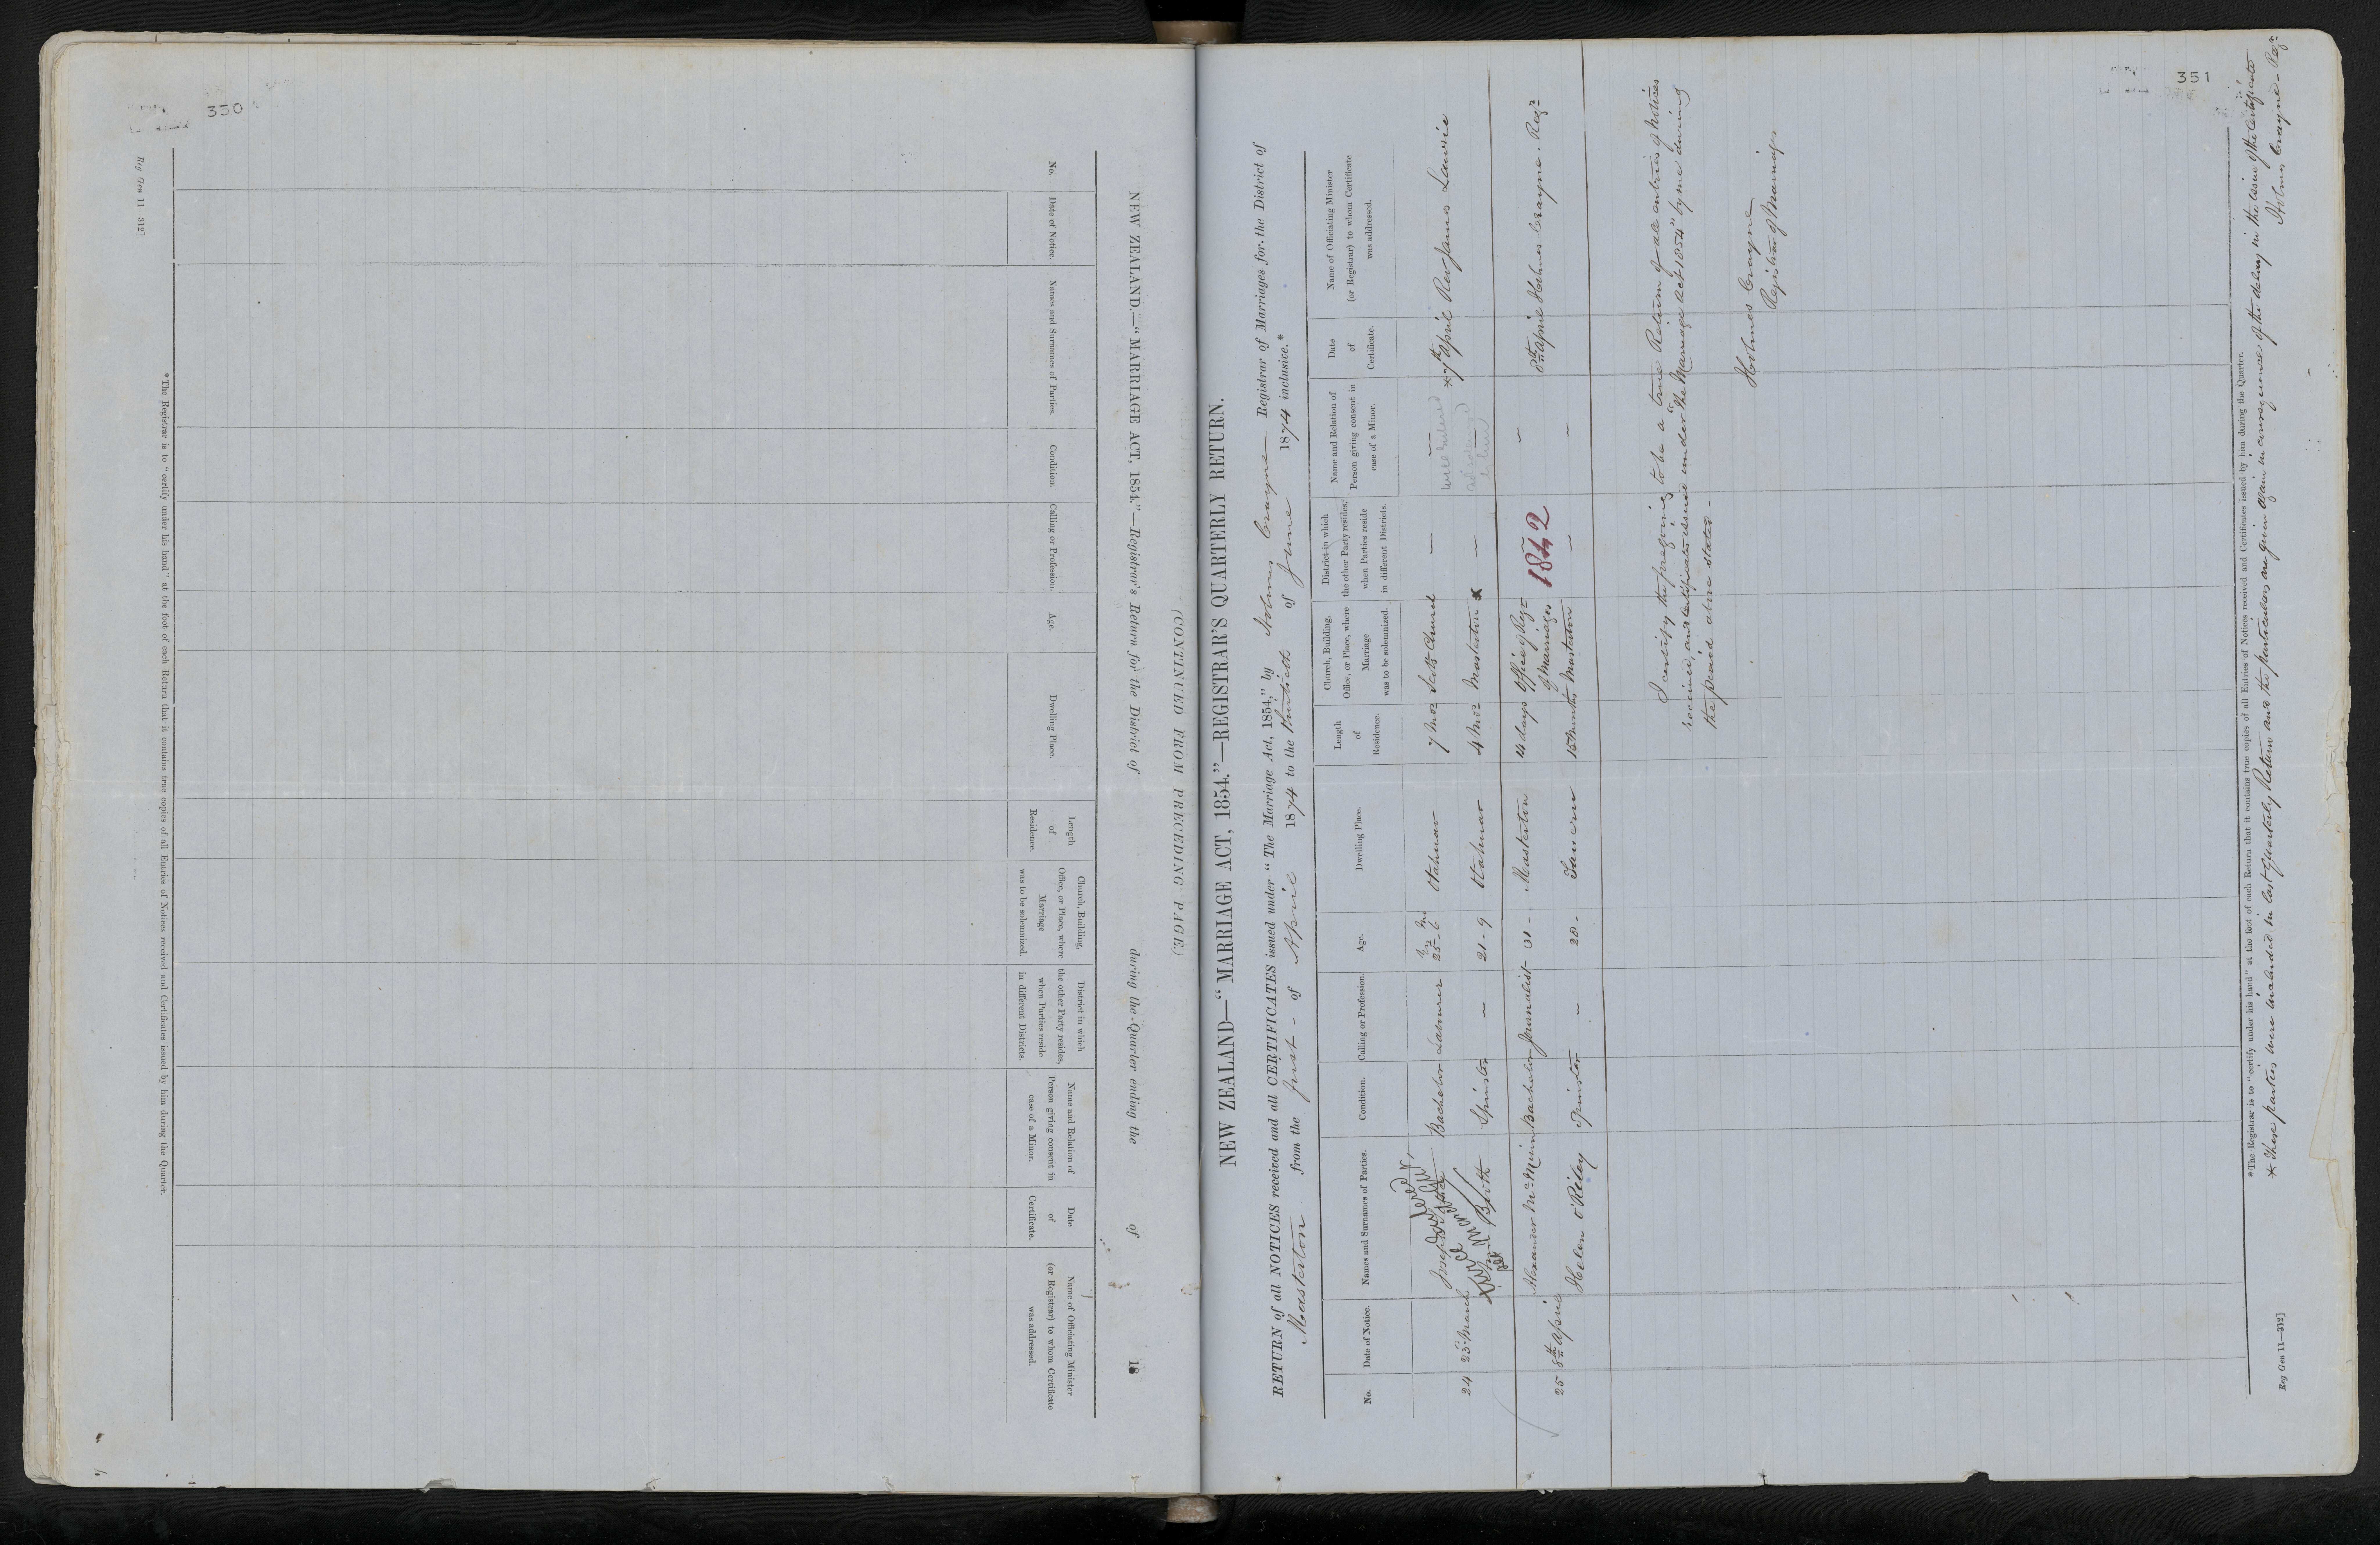 350
Reg Gen 11—312]
NEW ZEALAND.—“MARRIAGE ACT, 1854.”—Registrar's Return for the District of during the Quarter ending the of 18
(CONTINUED FROM PRECEDING PAGE.)
No.
Date of Notice.
Names and Surnames of Parties.
Condition.
Calling or Profession.
Age.
Dwelling Place.
Length
of
Residence.
Church, Building,
Office, or Place, where
Marriage
was to be solemnized.
District in which
the other Party resides,
when Parties reside
in different Districts.
Name and Relation of
Person giving consent in
case of a Minor.
Date
of
Certificate.
Name of Officiating Minister
(or Registrar) to whom Certificate
was addressed.
*The Registrar is to “certify under his hand” at the foot of each Return that it contains true copies of all Entries of Notices received and Certificates issued by him during the Quarter.
351
NEW ZEALAND—“MARRIAGE ACT, 1854.”—REGISTRAR'S QUARTERLY RETURN.
RETURN of all NOTICES received and all CERTIFICATES issued under “The Marriage Act, 1854,” by Holmes Crayne Registrar of Marriages for the District of
Masterton from the first of April 1874 to the thirtieth of June 1874 inclusive.*
No.
Date of Notice.
Names and Surnames of Parties.
Condition.
Calling or Profession.
Age.
Dwelling Place.
Length
of
Residence.
Church, Building,
Office, or Place, where
Marriage
was to be solemnized.
District in which
the other Party resides,
when Parties reside
in different Districts.
Name and Relation of
Person giving consent in
case of a Minor.
Date
of
Certificate.
Name of Officiating Minister
(or Registrar) to whom Certificate
was addressed.
Joseph Bachelor Labourer 25-6 Otahuao 7 Mos Scotch Church — — *7th April Rev James Lawrie
24 23 March Blyth Spinster — 21-9 Otahuao 4 Mos Masterton — —
Alexander McMinn Bachelor Journalist 31 - Masterton 14 days Office of Regr of Marriages 1842 - 8th April Holmes Crayne. Regr
25 8th April Helen O'Riley Spinster — 28 - 15 Months Masterton — -
I certify the foregoing to be a true Return of all entries of notices
received, and certificates issued under the “Marriage Act 1854” by me during
the period above stated -
Holmes Crayne
Registrar of Marriages
*The Registrar is to “certify under his hand” at the foot of each Return that it contains true copies of all Entries of Notices received and Certificates issued by him during the Quarter.
* These parties were included in last Quarterly Return and the particulars are given again in consequence of the delay in the issue of the Certificate
Holmes Crayne - Regr
Reg Gen 11—312]